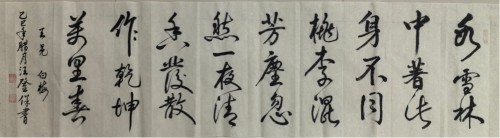 冰雪林
中著此
身不同
桃李混
芳塵忽
然一夜清
香發散
作乾坤
萬里春
王冕 白梅
乙巳年腊月汪登保書